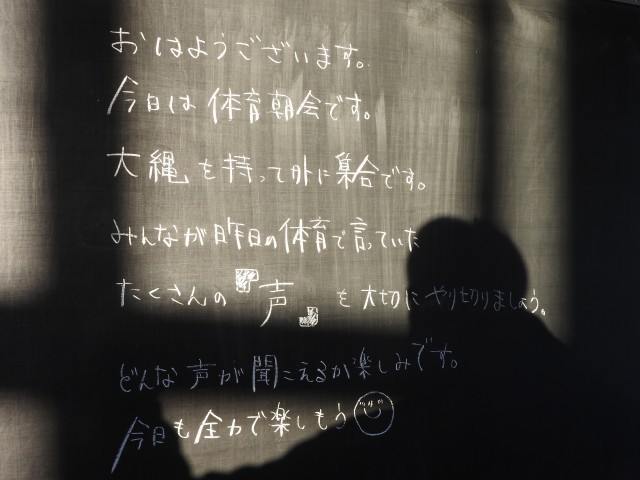 おはようございます。
今日は体育朝会です。
大縄を持って外に集合です。
みんなが昨日の体育で言っていた
たくさんの『声』を大切にやり切りましょう。
どんな声が聞こえるか楽しみです。
今日も全力で楽しもう